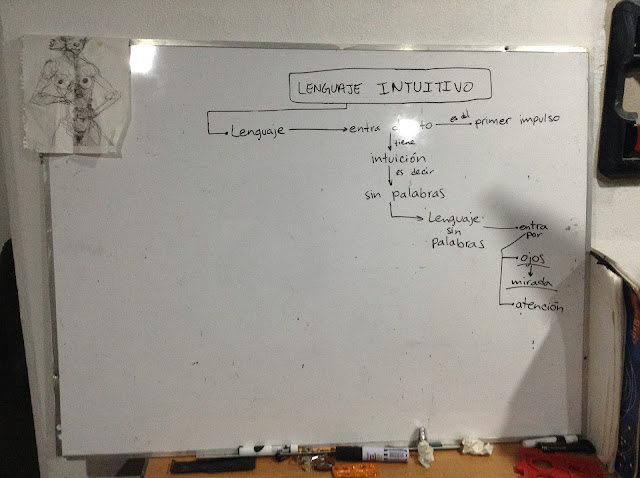 LENGUAJE INTUITIVO
Lenguaje entra es el primer impulso
tiene
intuición
es decir
sin palabras
Lenguaje
sin
palabras
entra
por
ojos
mirada
atención